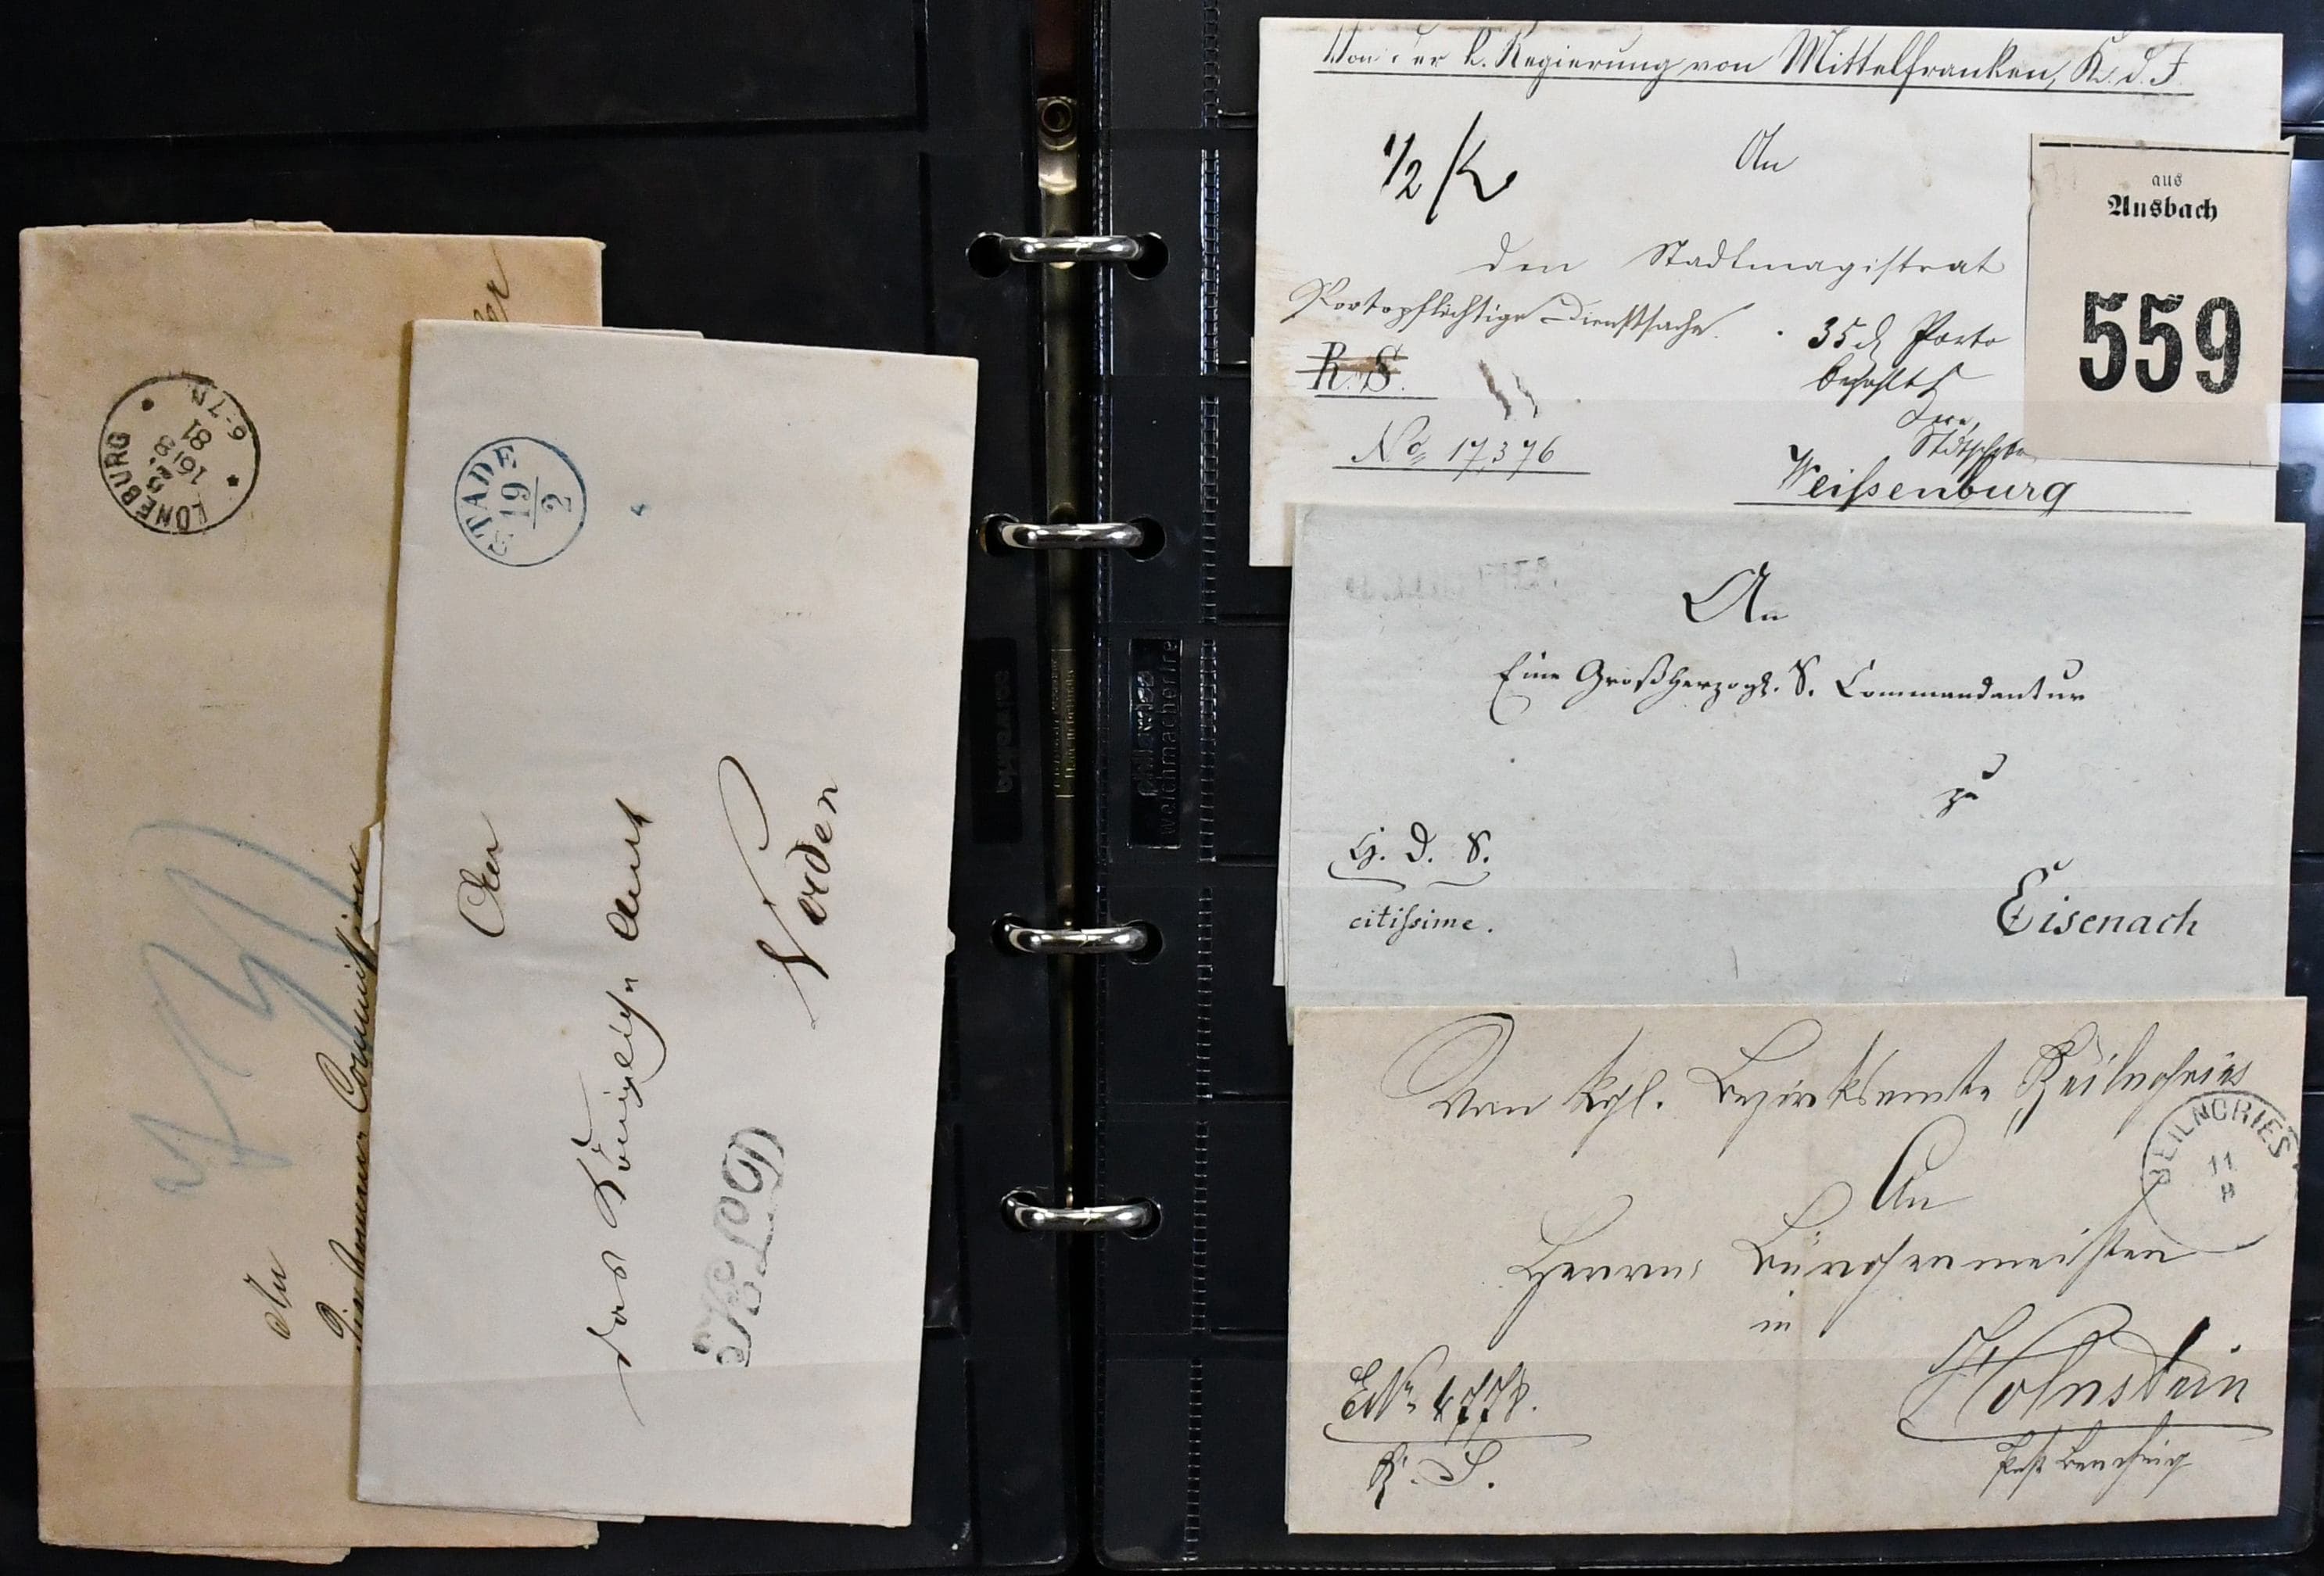 LÜNEBURG
16 8
81
6-7N
An
Commission
STADE
19
2
An
das Königliche Amt
Verden
philarema
weichmacherfrei
Von der k. Regierung von Mittelfranken, K. d. I.
1/2 K
An
den Stadtmagistrat
Portopflichtige Dienstsache.
R. S.
35 Porto
bezahlt
No 17,376
Weißenburg
aus
Ansbach
559
An
Eine Großherzogl. S. Commandantur
zu
H. D. S.
citissime.
Eisenach
Vom kgl. Bezirksamte Beilngries
BEILNGRIES
11
8
An
Herrn Bürgermeister
in
Holnstein
ENr. 4778.
R. S.
Post Berching